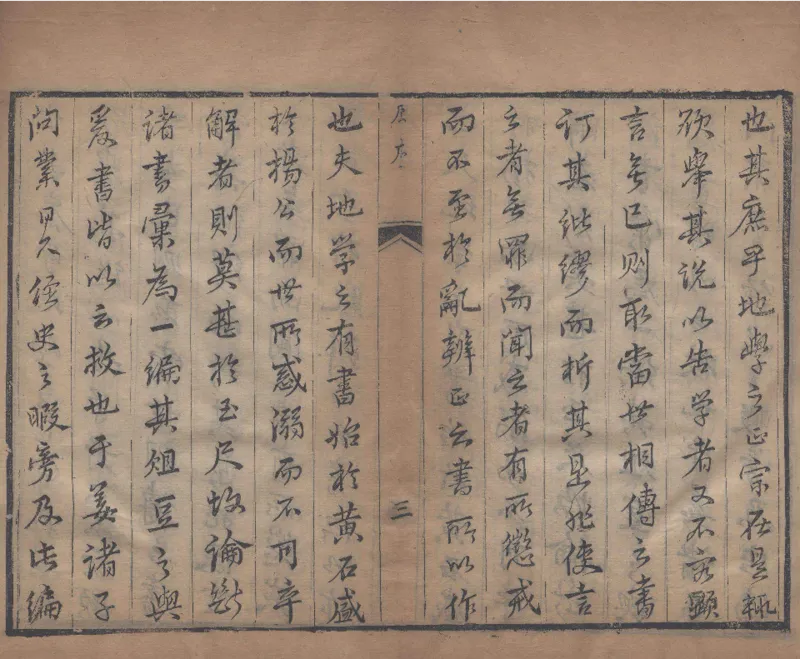 也其庶乎地學之正宗在是輒
欲舉其說以告学者又不容顯
言無已则取當世相傳之書
訂其紕繆而析其是非使言
之者無罪而聞之者有所懲戒
而不至於亂辨正之書所以作
原序
三
也夫地学之有書始於黃石盛
於楊公而世所惑溺而不可卒
解者則莫甚於玉尺故論斷
諸書彙為一編其俎豆之與
爰書皆以云救也于姜諸子
問業日久經史之暇旁及此編